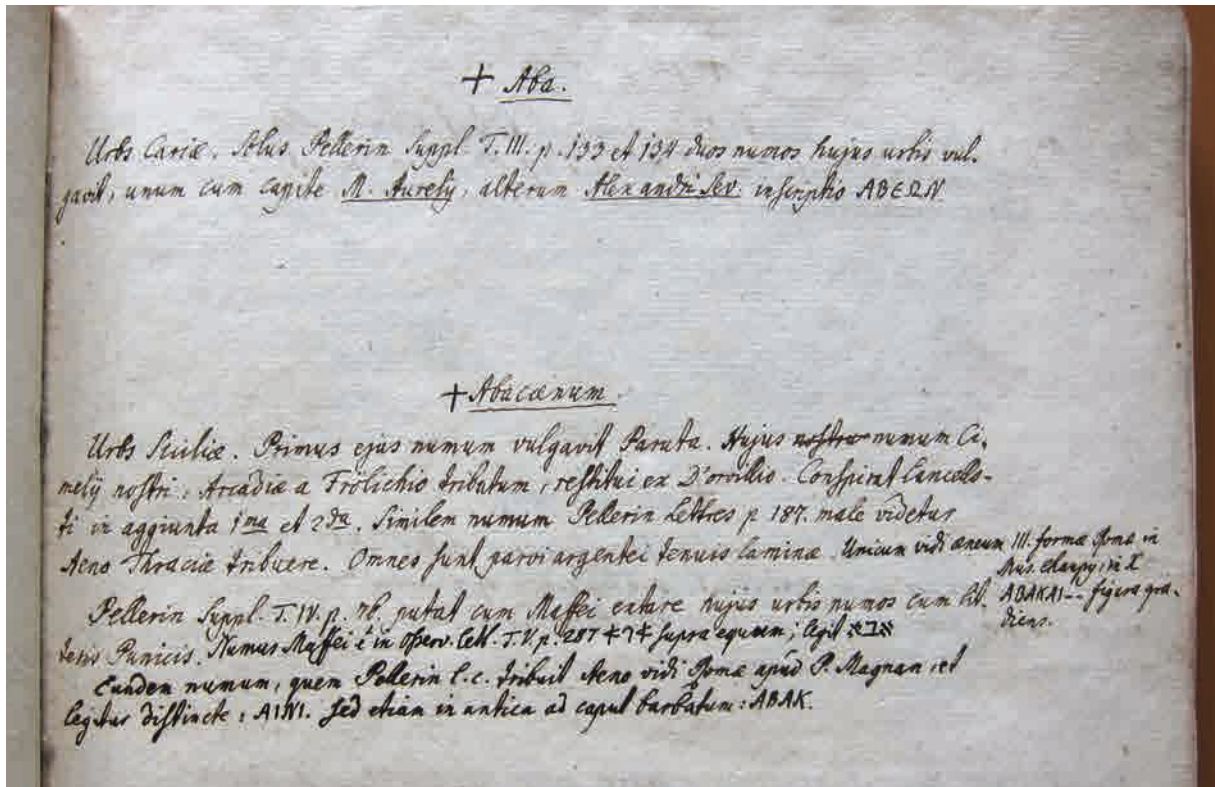 + Aba.
Urbs Cariæ. Solus Pellerin Suppl. T. III. p. 133 et 134 duos numos hujus urbis vul-
gavit, unum cum capite M. Aurelij, alterum Alexandri Sev. inscriptio ΑΒΕΩΝ
+ Abacænum.
Urbs Siciliæ. Primus ejus numum vulgavit Paruta. Hujus nostra numum Ci-
melij nostri, Arcadiæ a Frölichio tributum, restitui ex D'orvillio. Conspirat Lancello-
ti in aggiunta 1ma et 2da. Similem numum Pellerin Lettres p 187. male videtur
Aeno Thraciæ tribuere. Omnes sunt parvi argentei tenuis laminæ. Unicum vidi æneum III. formæ Romæ in
Mus. Chaupy, in
ABAKAI-- figura gra-
diens.
Pellerin Suppl. T. IV. p. 76. putat cum Maffei extare hujus urbis numos cum lit-
teris Punicis. Numus Maffei e in Osserv. Lett. T. V. p. 287 supra equum; legit אבא
Eundem numum, quem Pellerin l. c. tribuit Aeno vidi Romæ apud P. Magnan, et
legitur distincte: AINI. sed etiam in antica ad caput barbatum: ABAK.